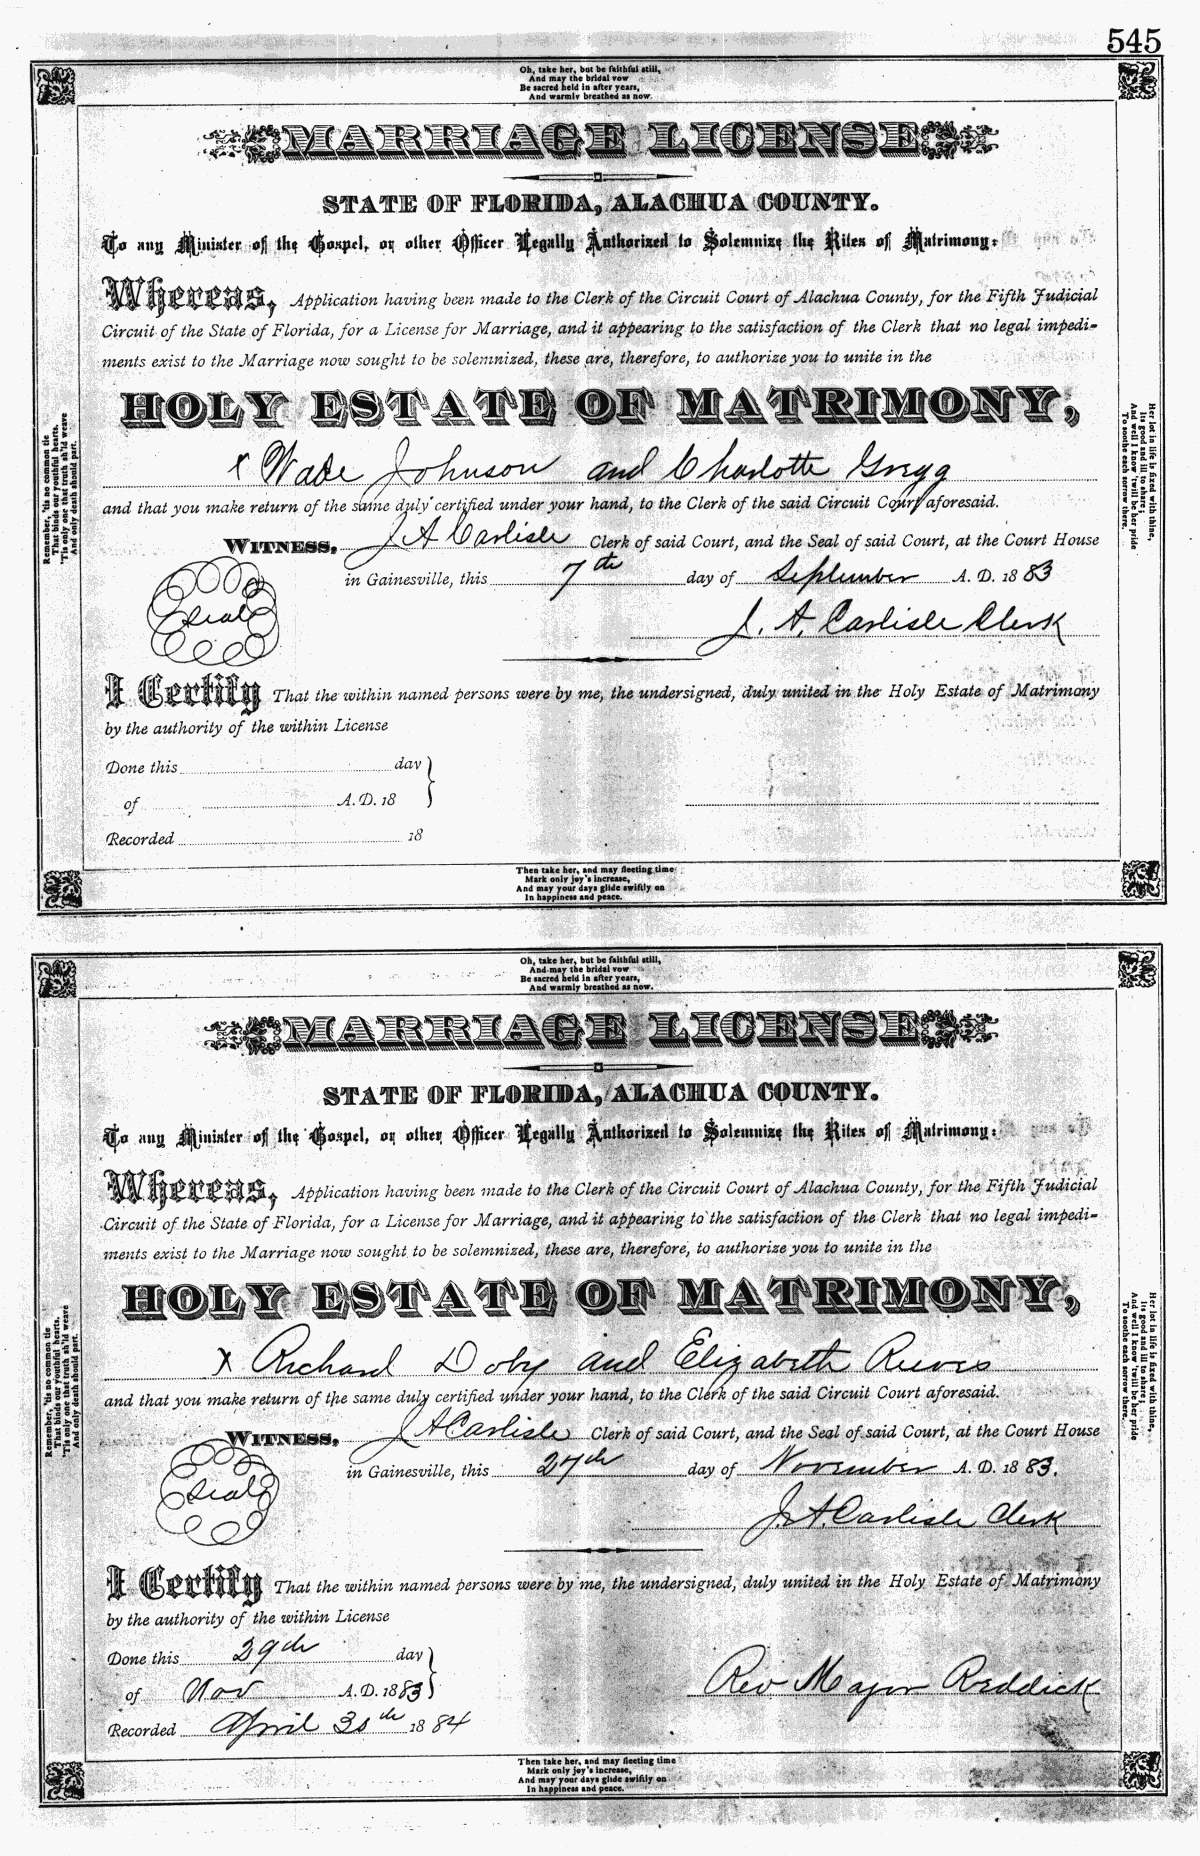 545
Oh, take her, but be faithful still,
And may the bridal vow
Be sacred held in after years,
And warmly breathed as now.
MARRIAGE LICENSE
STATE OF FLORIDA, ALACHUA COUNTY.
To any Minister of the Gospel, or other Officer Legally Authorized to Solemnize the Rites of Matrimony:
Whereas, Application having been made to the Clerk of the Circuit Court of Alachua County, for the Fifth Judicial
Circuit of the State of Florida, for a License for Marriage, and it appearing to the satisfaction of the Clerk that no legal impedi-
ments exist to the Marriage now sought to be solemnized, these are, therefore, to authorize you to unite in the
HOLY ESTATE OF MATRIMONY,
x Wade Johnson and Charlotte Gregg
and that you make return of the same duly certified under your hand, to the Clerk of the said Circuit Court aforesaid.
WITNESS, J A Carlisle Clerk of said Court, and the Seal of said Court, at the Court House
in Gainesville, this 7th day of September A. D. 18 83
Seal
J. A. Carlisle Clerk
I Certify That the within named persons were by me, the undersigned, duly united in the Holy Estate of Matrimony
by the authority of the within License
Done this day
of A. D. 18
Recorded 18
Remember, 'tis no common tie
That binds our youthful hearts,
'Tis only one that truth sh'ld weave
And only death should part.
Her lot in life is fixed with thine,
Its good and ill to share;
And well I know 'twill be her pride
To soothe each sorrow there.
Then take her, and may fleeting time
Mark only joy's increase,
And may your days glide swiftly on
In happiness and peace.
Oh, take her, but be faithful still,
And may the bridal vow
Be sacred held in after years,
And warmly breathed as now.
MARRIAGE LICENSE
STATE OF FLORIDA, ALACHUA COUNTY.
To any Minister of the Gospel, or other Officer Legally Authorized to Solemnize the Rites of Matrimony:
Whereas, Application having been made to the Clerk of the Circuit Court of Alachua County, for the Fifth Judicial
Circuit of the State of Florida, for a License for Marriage, and it appearing to the satisfaction of the Clerk that no legal impedi-
ments exist to the Marriage now sought to be solemnized, these are, therefore, to authorize you to unite in the
HOLY ESTATE OF MATRIMONY,
x Richard Doby and Elizabeth Reeves
and that you make return of the same duly certified under your hand, to the Clerk of the said Circuit Court aforesaid.
WITNESS, J A Carlisle Clerk of said Court, and the Seal of said Court, at the Court House
in Gainesville, this 27th day of November A. D. 18 83.
Seal
J. A. Carlisle Clerk
I Certify That the within named persons were by me, the undersigned, duly united in the Holy Estate of Matrimony
by the authority of the within License
Done this 29th day
of Nov A. D. 18 83
Rev Major Reddick
Recorded April 30th 18 84
Remember, 'tis no common tie
That binds our youthful hearts,
'Tis only one that truth sh'ld weave
And only death should part.
Her lot in life is fixed with thine,
Its good and ill to share;
And well I know 'twill be her pride
To soothe each sorrow there.
Then take her, and may fleeting time
Mark only joy's increase,
And may your days glide swiftly on
In happiness and peace.